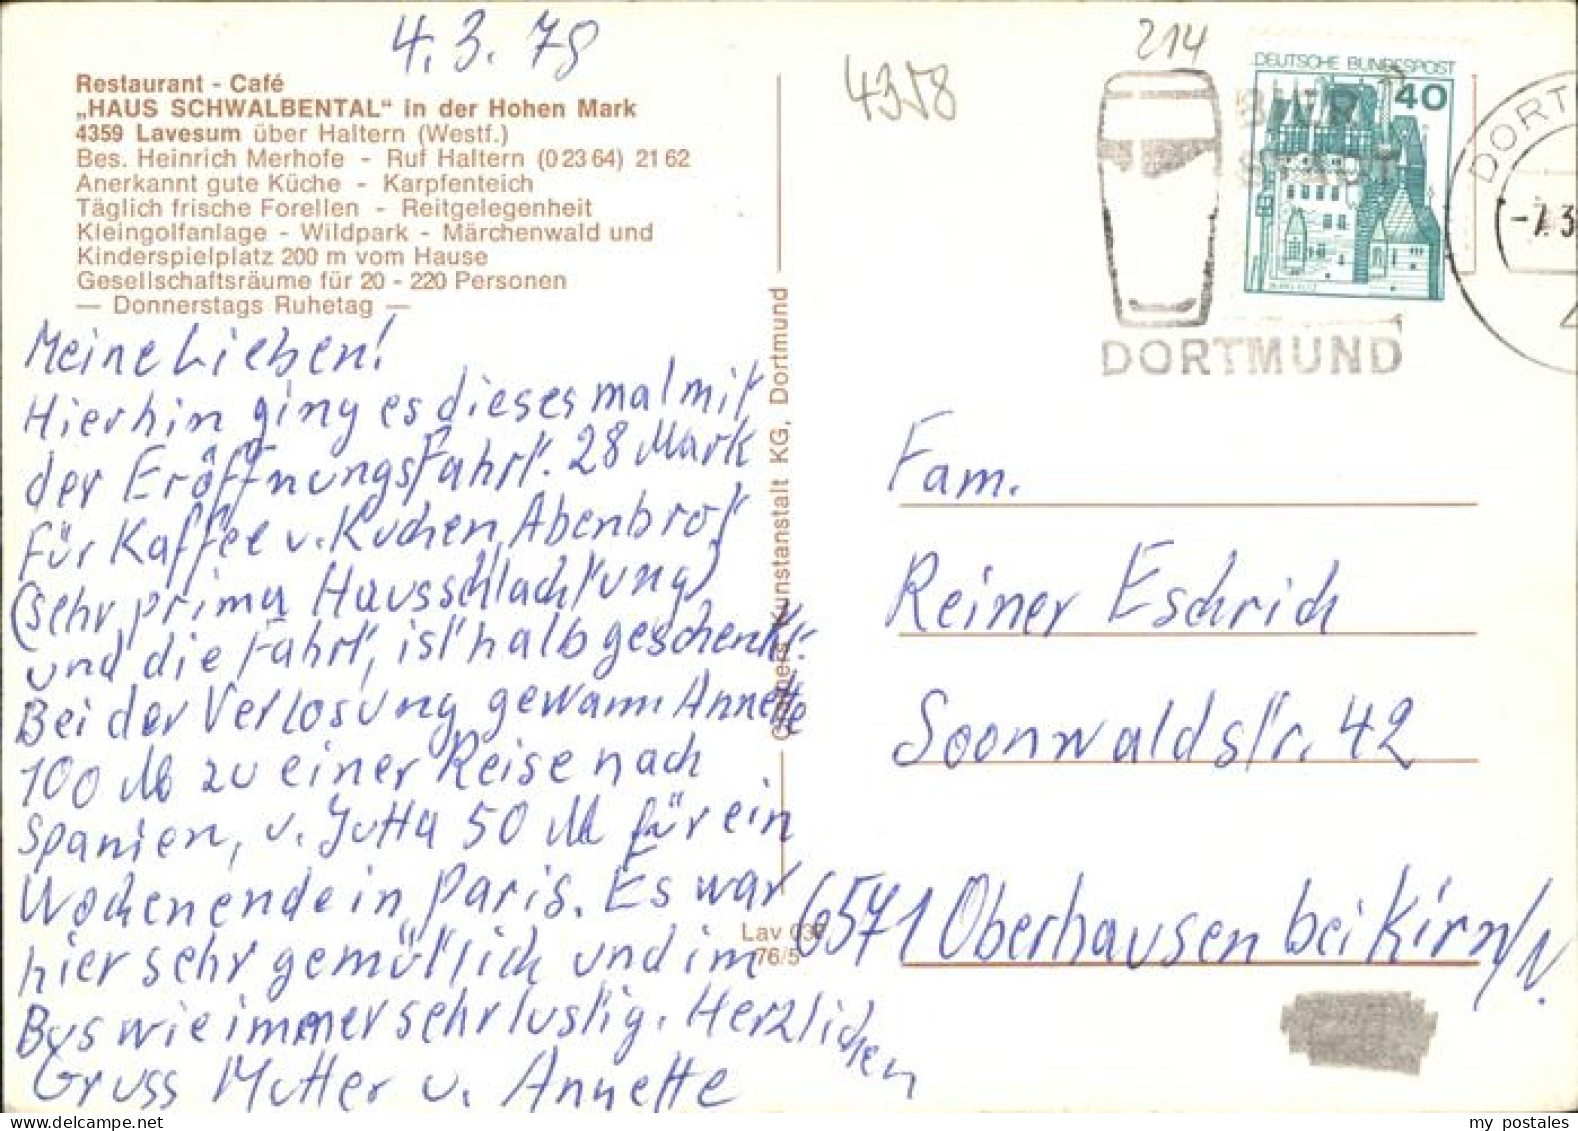 4.3.78
Restaurant - Café
„HAUS SCHWALBENTAL“ in der Hohen Mark
4359 Lavesum über Haltern (Westf.)
Bes. Heinrich Merhofe - Ruf Haltern (0 23 64) 21 62
Anerkannt gute Küche - Karpfenteich
Täglich frische Forellen - Reitgelegenheit
Kleingolfanlage - Wildpark - Märchenwald und
Kinderspielplatz 200 m vom Hause
Gesellschaftsräume für 20 - 220 Personen
— Donnerstags Ruhetag —
Meine Lieben!
Hierhin ging es dieses mal mit
der Eröffnungsfahrt. 28 Mark
für Kaffee u. Kuchen, Abenbrot
(sehr prima Hausschlachtung)
und die Fahrt, ist halb geschenkt.
Bei der Verlosung gewann Annette
100 M zu einer Reise nach
Spanien, u. Jutta 50 M für ein
Wochenende in Paris. Es war
hier sehr gemütlich und im
Bus wie immer sehr lustig. Herzlichen
Gruss Mutter u. Annette
Kunstanstalt KG, Dortmund
Lav
76/5
4358
214
DEUTSCHE BUNDESPOST
40
BIER
STADT
DORTMUND
DORT
-7.3
Fam.
Reiner Eschrich
Soonwaldstr. 42
6571 Oberhausen bei Kirn/N.
my postales